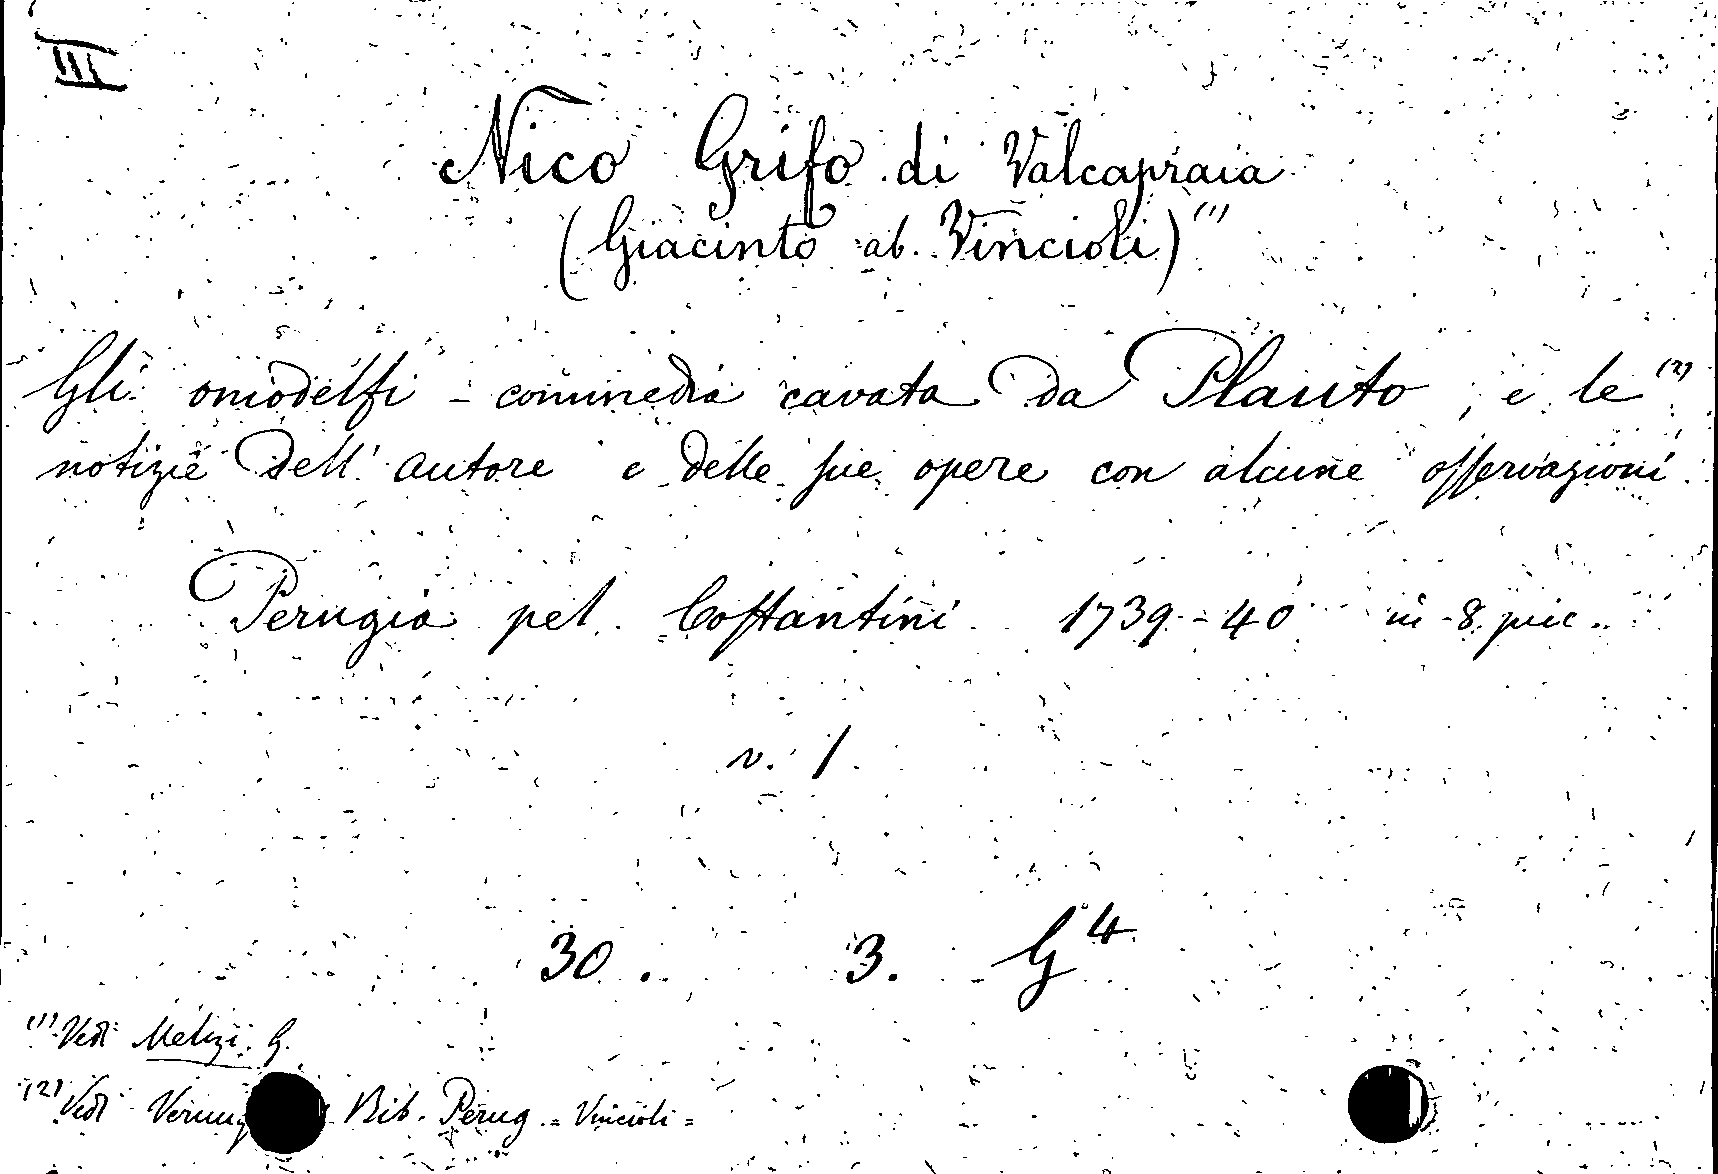 III
Nico Grifo di Valcapraia
(Giacinto ab. Vincioli) (1)
Gli omodelfi - commedia cavata da Plauto, e le (2)
notizie dell' autore e delle sue opere con alcune osservazioni
Perugia pel Costantini 1739-40 in 8. pic.
v. 1
30. 3. G 4
(1) Vedi Melzi. G.
(2) Vedi Bib. Perug. = Vincioli =